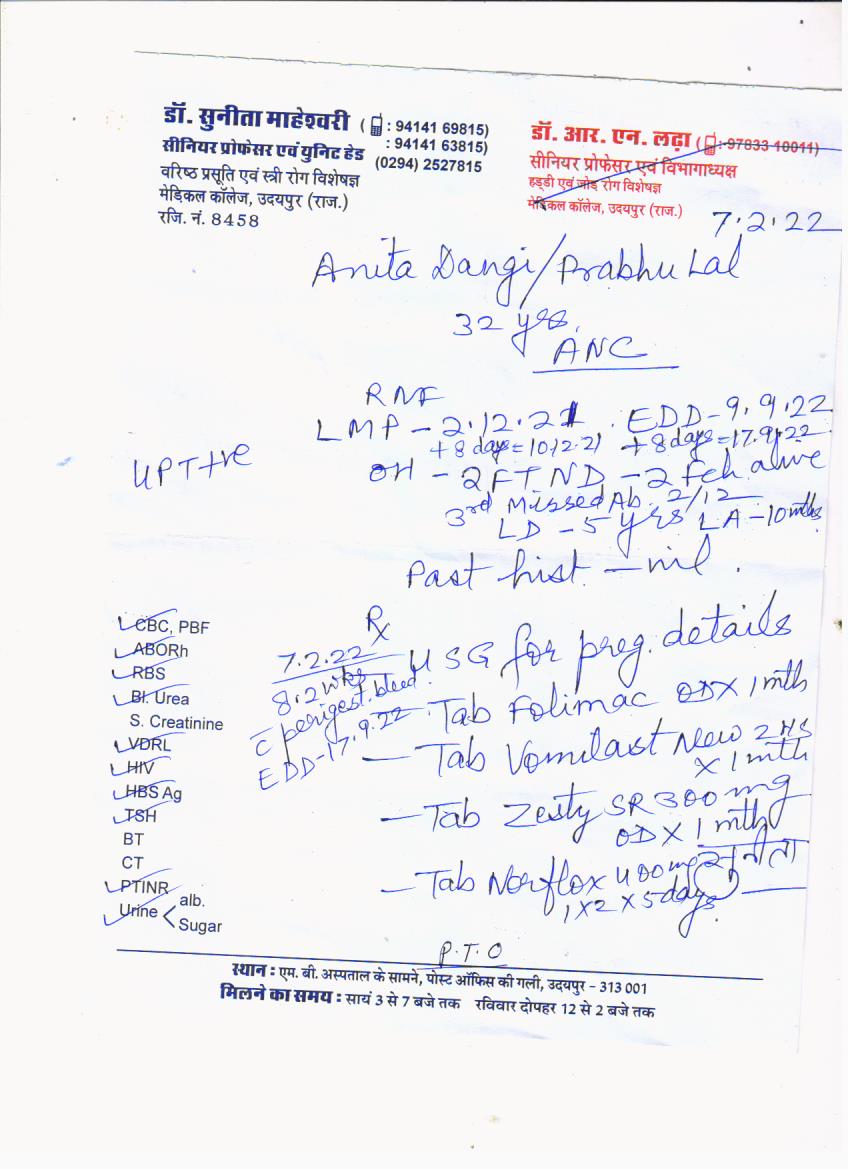 डॉ. सुनीता माहेश्वरी ( : 94141 69815)
: 94141 63815)
सीनियर प्रोफेसर एवं युनिट हेड (0294) 2527815
वरिष्ठ प्रसूति एवं स्त्री रोग विशेषज्ञ
मेडिकल कॉलेज, उदयपुर (राज.)
रजि. नं. 8458
डॉ. आर. एन. लढ़ा ( : 97833 10011)
सीनियर प्रोफेसर एवं विभागाध्यक्ष
हड्डी एवं जोड़ रोग विशेषज्ञ
मेडिकल कॉलेज, उदयपुर (राज.)
7.2.22
Anita Dangi/Prabhu Lal
32 yrs.
ANC
RMF
LMP - 2.12.21 . EDD - 9.9.22
+ 8 days = 10.12.21 + 8 days = 17.9.22
UPT +ve
OH - 2 FTND - 2 Fch alive
3rd Missed Ab. 2/12
LD - 5 yrs LA - 10 mths
Past hist - nil .
Rx
7.2.22 USG for preg. details
8.2 wks
c̄ perigest. bleed.
EDD - 17.9.22
Tab Folimac OD X 1 mth
- Tab Vomilast New 2 HS
X 1 mth
- Tab Zesty SR 300 mg
OD X 1 mth
- Tab Norflox 400 mg
1 X 2 X 5 days
सुनीता
P.T.O
CBC, PBF
ABORh
RBS
Bl. Urea
S. Creatinine
VDRL
HIV
HBS Ag
TSH
BT
CT
PTINR
Urine < alb.
Sugar
स्थान : एम. बी. अस्पताल के सामने, पोस्ट ऑफिस की गली, उदयपुर - 313 001
मिलने का समय : सायं 3 से 7 बजे तक रविवार दोपहर 12 से 2 बजे तक